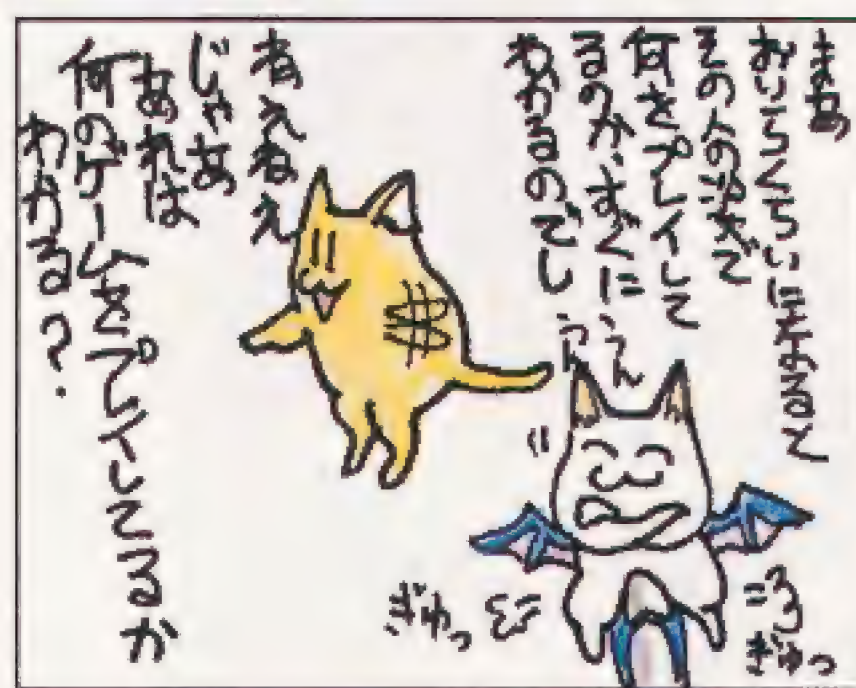 まあ
おいらくらいになると
その人の姿で
何をプレイして
るのか、すぐに
わかるのでし
うんうん
ねえねえ
じゃあ
あれは
何のゲームをプレイしてるか
わかる?
ぎゅっ
ぎゅっ